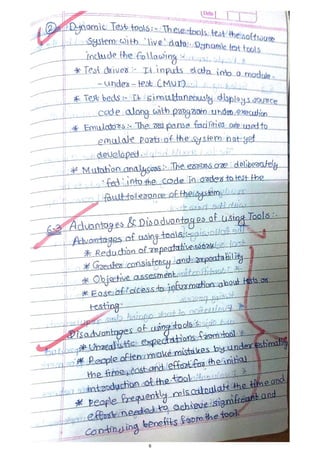 ② Dynamic Test tools:- These tools test the software
system with 'live' data. Dynamic test tools
include the following
* Test driver - It inputs data into a module
-under-test (MUT)
* Test beds:- It simultaneously displays source
code along with program under execution
* Emulators:- The response facilities are used to
emulate parts of the system not yet
developed
* Mutation analyzers:- The errors are deliberately
'fed' into the code in order to test the
fault tolerance of the system
6.3 Advantages & Disadvantages of using Tools:-
Advantages of using tools:
* Reduction of repetative work
* Greater consistency and repeatability
* Objective assesment
* Ease of access to information about tests or
testing.
Disadvantages of using tools:
* Unrealistic expectations from tool
* People often make mistakes by underestimating
the time, cost and effort for the initial
introduction of the tool
* People frequently miscalculate the time and
effort needed to achieve significant and
continuing benefits from the tool.
6